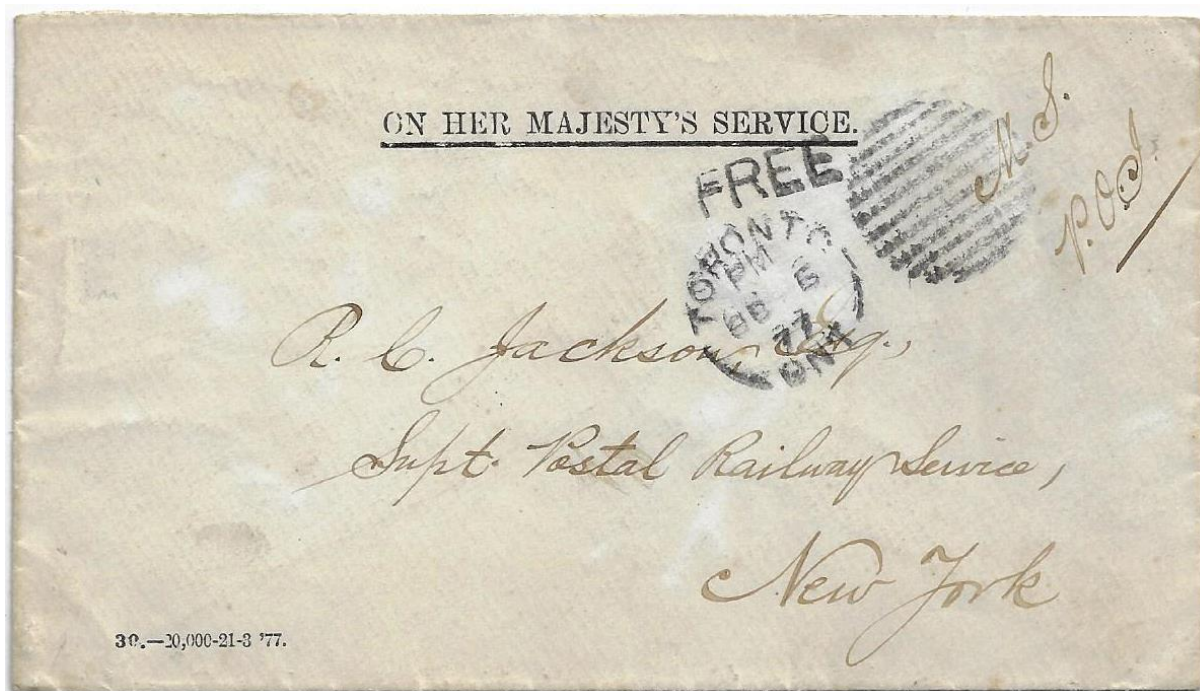 ON HER MAJESTY'S SERVICE.
FREE
TORONTO
PM
5
77
ONT
M. S.
P.O.I.
R. C. Jackson Esq.,
Supt. Postal Railway Service,
New York
30.—20,000-21-3 '77.